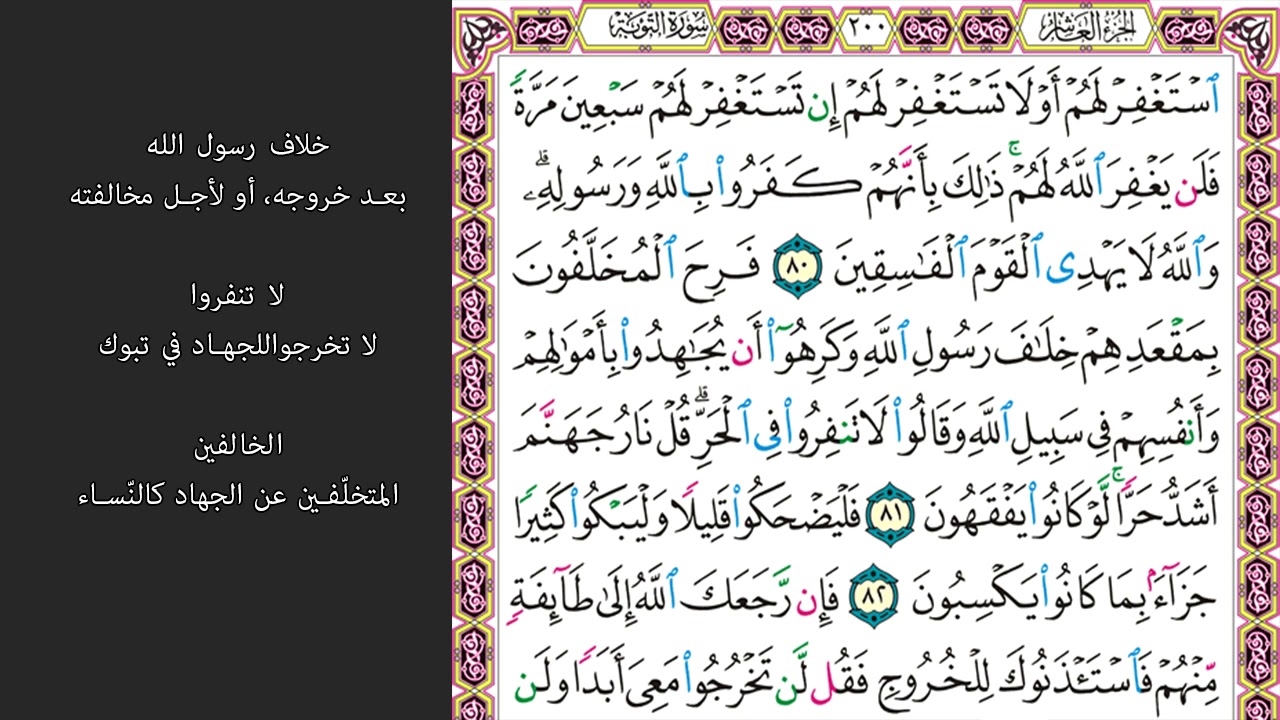 الجزء العاشر
٢٠٠
سورة التوبة
ٱسْتَغْفِرْ لَهُمْ أَوْ لَا تَسْتَغْفِرْ لَهُمْ إِن تَسْتَغْفِرْ لَهُمْ سَبْعِينَ مَرَّةً
فَلَن يَغْفِرَ ٱللَّهُ لَهُمْ ۚ ذَٰلِكَ بِأَنَّهُمْ كَفَرُوا۟ بِٱللَّهِ وَرَسُولِهِۦ ۗ
وَٱللَّهُ لَا يَهْدِى ٱلْقَوْمَ ٱلْفَـٰسِقِينَ ٨٠ فَرِحَ ٱلْمُخَلَّفُونَ
بِمَقْعَدِهِمْ خِلَـٰفَ رَسُولِ ٱللَّهِ وَكَرِهُوٓا۟ أَن يُجَـٰهِدُوا۟ بِأَمْوَٰلِهِمْ
وَأَنفُسِهِمْ فِى سَبِيلِ ٱللَّهِ وَقَالُوا۟ لَا تَنفِرُوا۟ فِى ٱلْحَرِّ ۗ قُلْ نَارُ جَهَنَّمَ
أَشَدُّ حَرًّا ۚ لَّوْ كَانُوا۟ يَفْقَهُونَ ٨١ فَلْيَضْحَكُوا۟ قَلِيلًا وَلْيَبْكُوا۟ كَثِيرًا
جَزَآءًۢ بِمَا كَانُوا۟ يَكْسِبُونَ ٨٢ فَإِن رَّجَعَكَ ٱللَّهُ إِلَىٰ طَآئِفَةٍ
مِّنْهُمْ فَٱسْتَـْٔذَنُوكَ لِلْخُرُوجِ فَقُل لَّن تَخْرُجُوا۟ مَعِىَ أَبَدًا وَلَن
خلاف رسول الله
بعد خروجه، أو لأجل مخالفته
لا تنفروا
لا تخرجواللجهاد في تبوك
الخالفين
المتخلّفين عن الجهاد كالنّساء